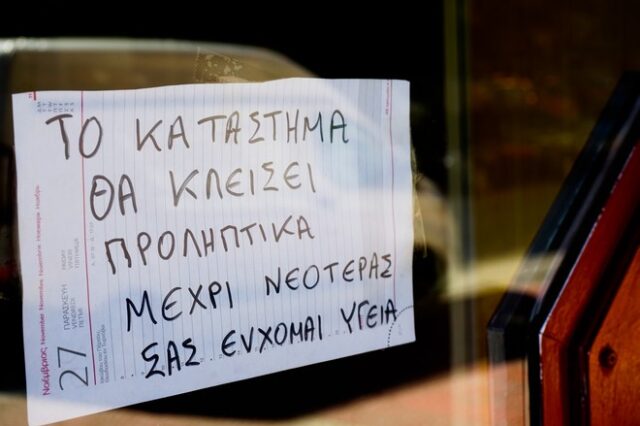 ΤΟ ΚΑΤΑΣΤΗΜΑ
ΘΑ ΚΛΕΙΣΕΙ
ΠΡΟΛΗΠΤΙΚΑ
ΜΕΧΡΙ ΝΕΟΤΕΡΑΣ
ΣΑΣ ΕΥΧΟΜΑΙ ΥΓΕΙΑ
Νοέμβριος November
27
ΠΑΡΑΣΚΕΥΗ
FRIDAY
VENDREDI